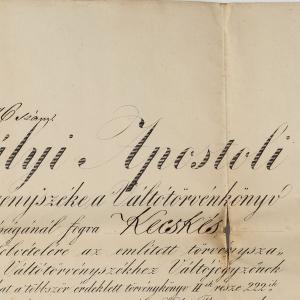 ályi Apostoli
enyszéke a Váltótörvénkönyv
ságánál fogva Kecskés
elvételére az említett törvénysza„
Váltótörvényszékhez Váltójegyzőnek
at a többször érdeklett törvénykönyv IIik része 222ik